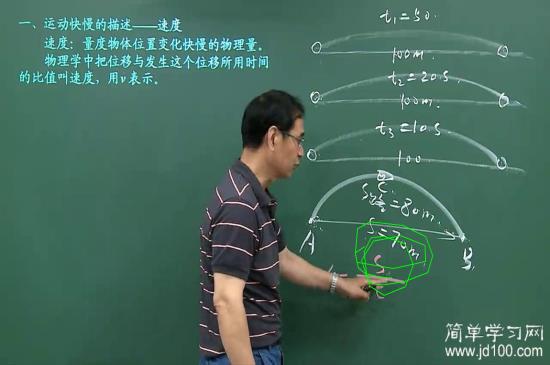 一、运动快慢的描述——速度
速度：量度物体位置变化快慢的物理量。
物理学中把位移与发生这个位移所用时间
的比值叫速度，用v表示。
t₁=50.
100m.
t₂=20s.
100m.
t₃=10s.
100.
C
=80m.
S=70m
A
B
S
简单学习网
www.jd100.com